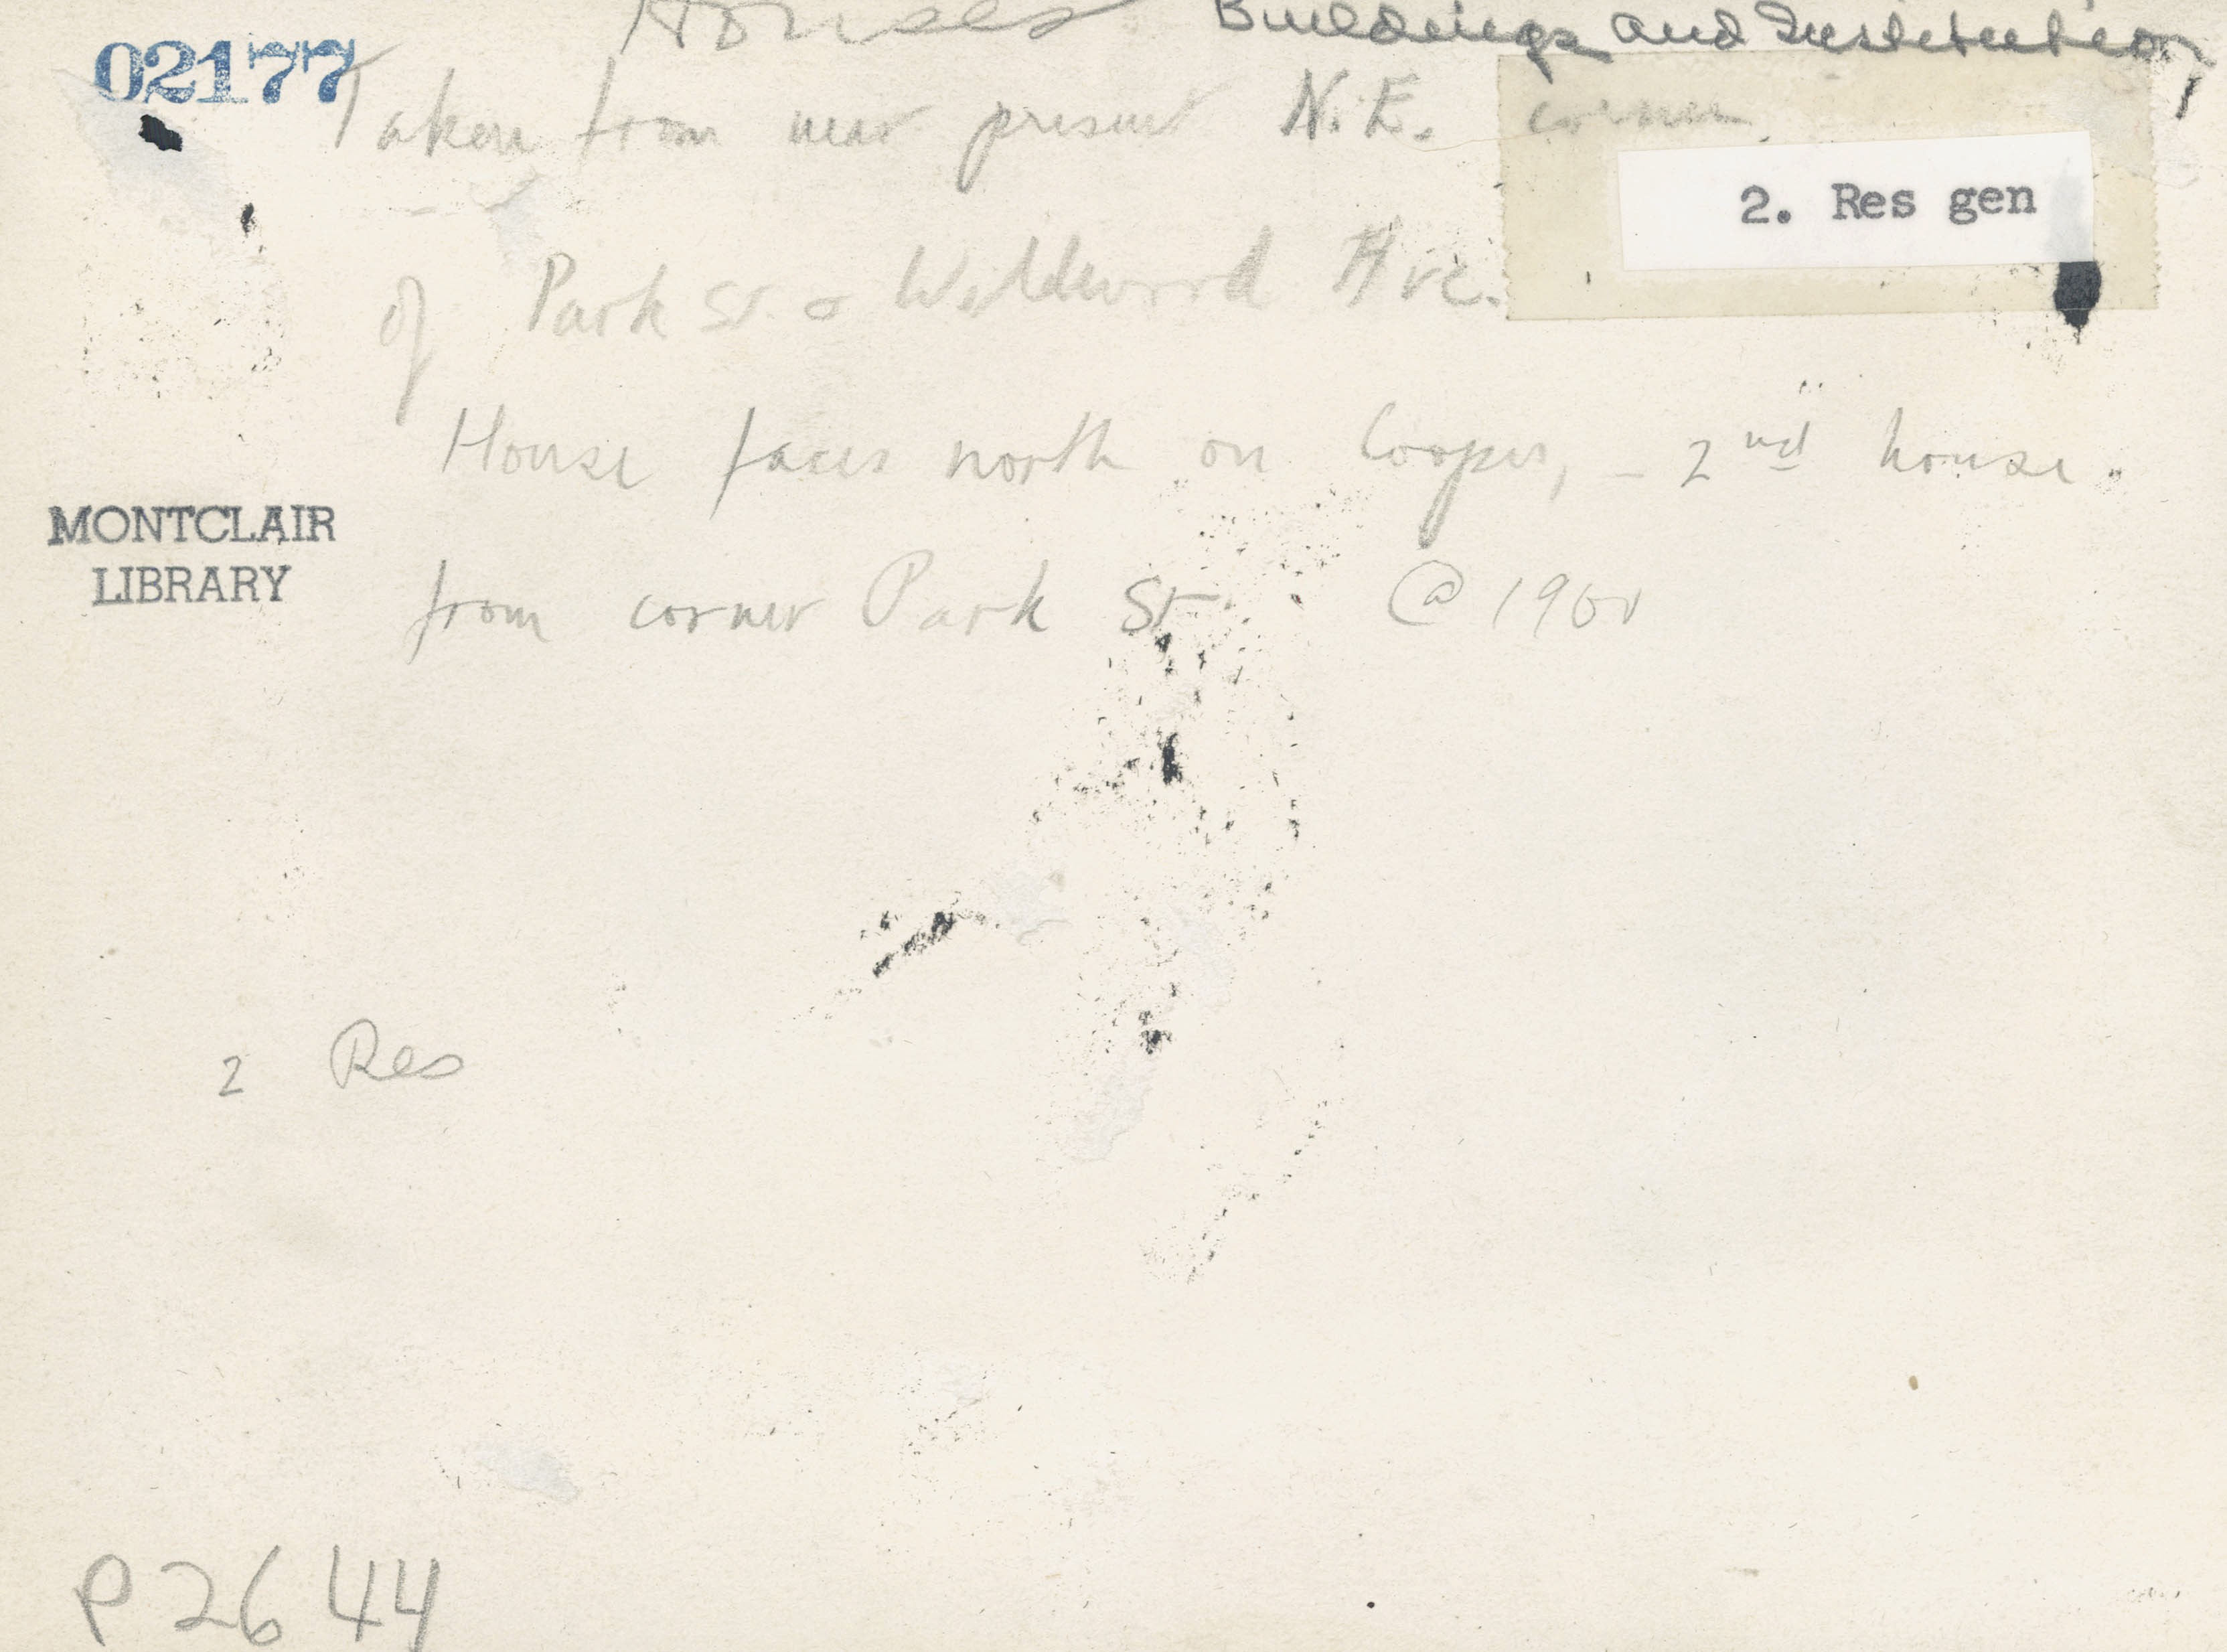 Houses Buildings and Institution
02177
Taken from near present N.E. corner
2. Res gen
of Park St. & Wildwood Ave.
House faces north on Cooper, - 2nd house.
MONTCLAIR
LIBRARY
from corner Park St @ 1900
2 Res
P2644